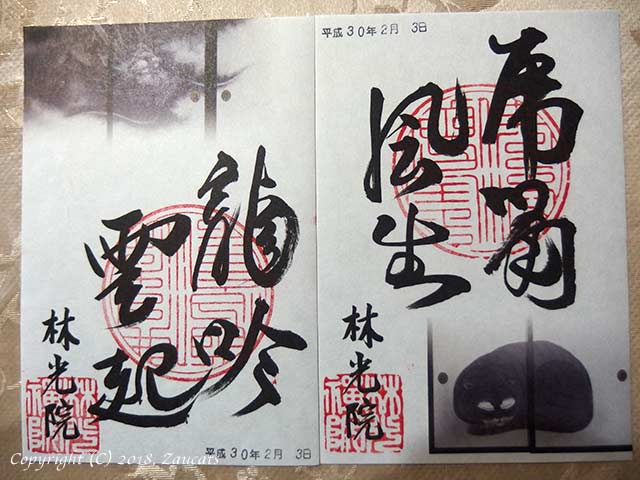 平成30年2月 3日
虎嘯
風生
林光院
龍吟
雲起
林光院
平成30年2月 3日
Copyright (C) 2018, Zaucats